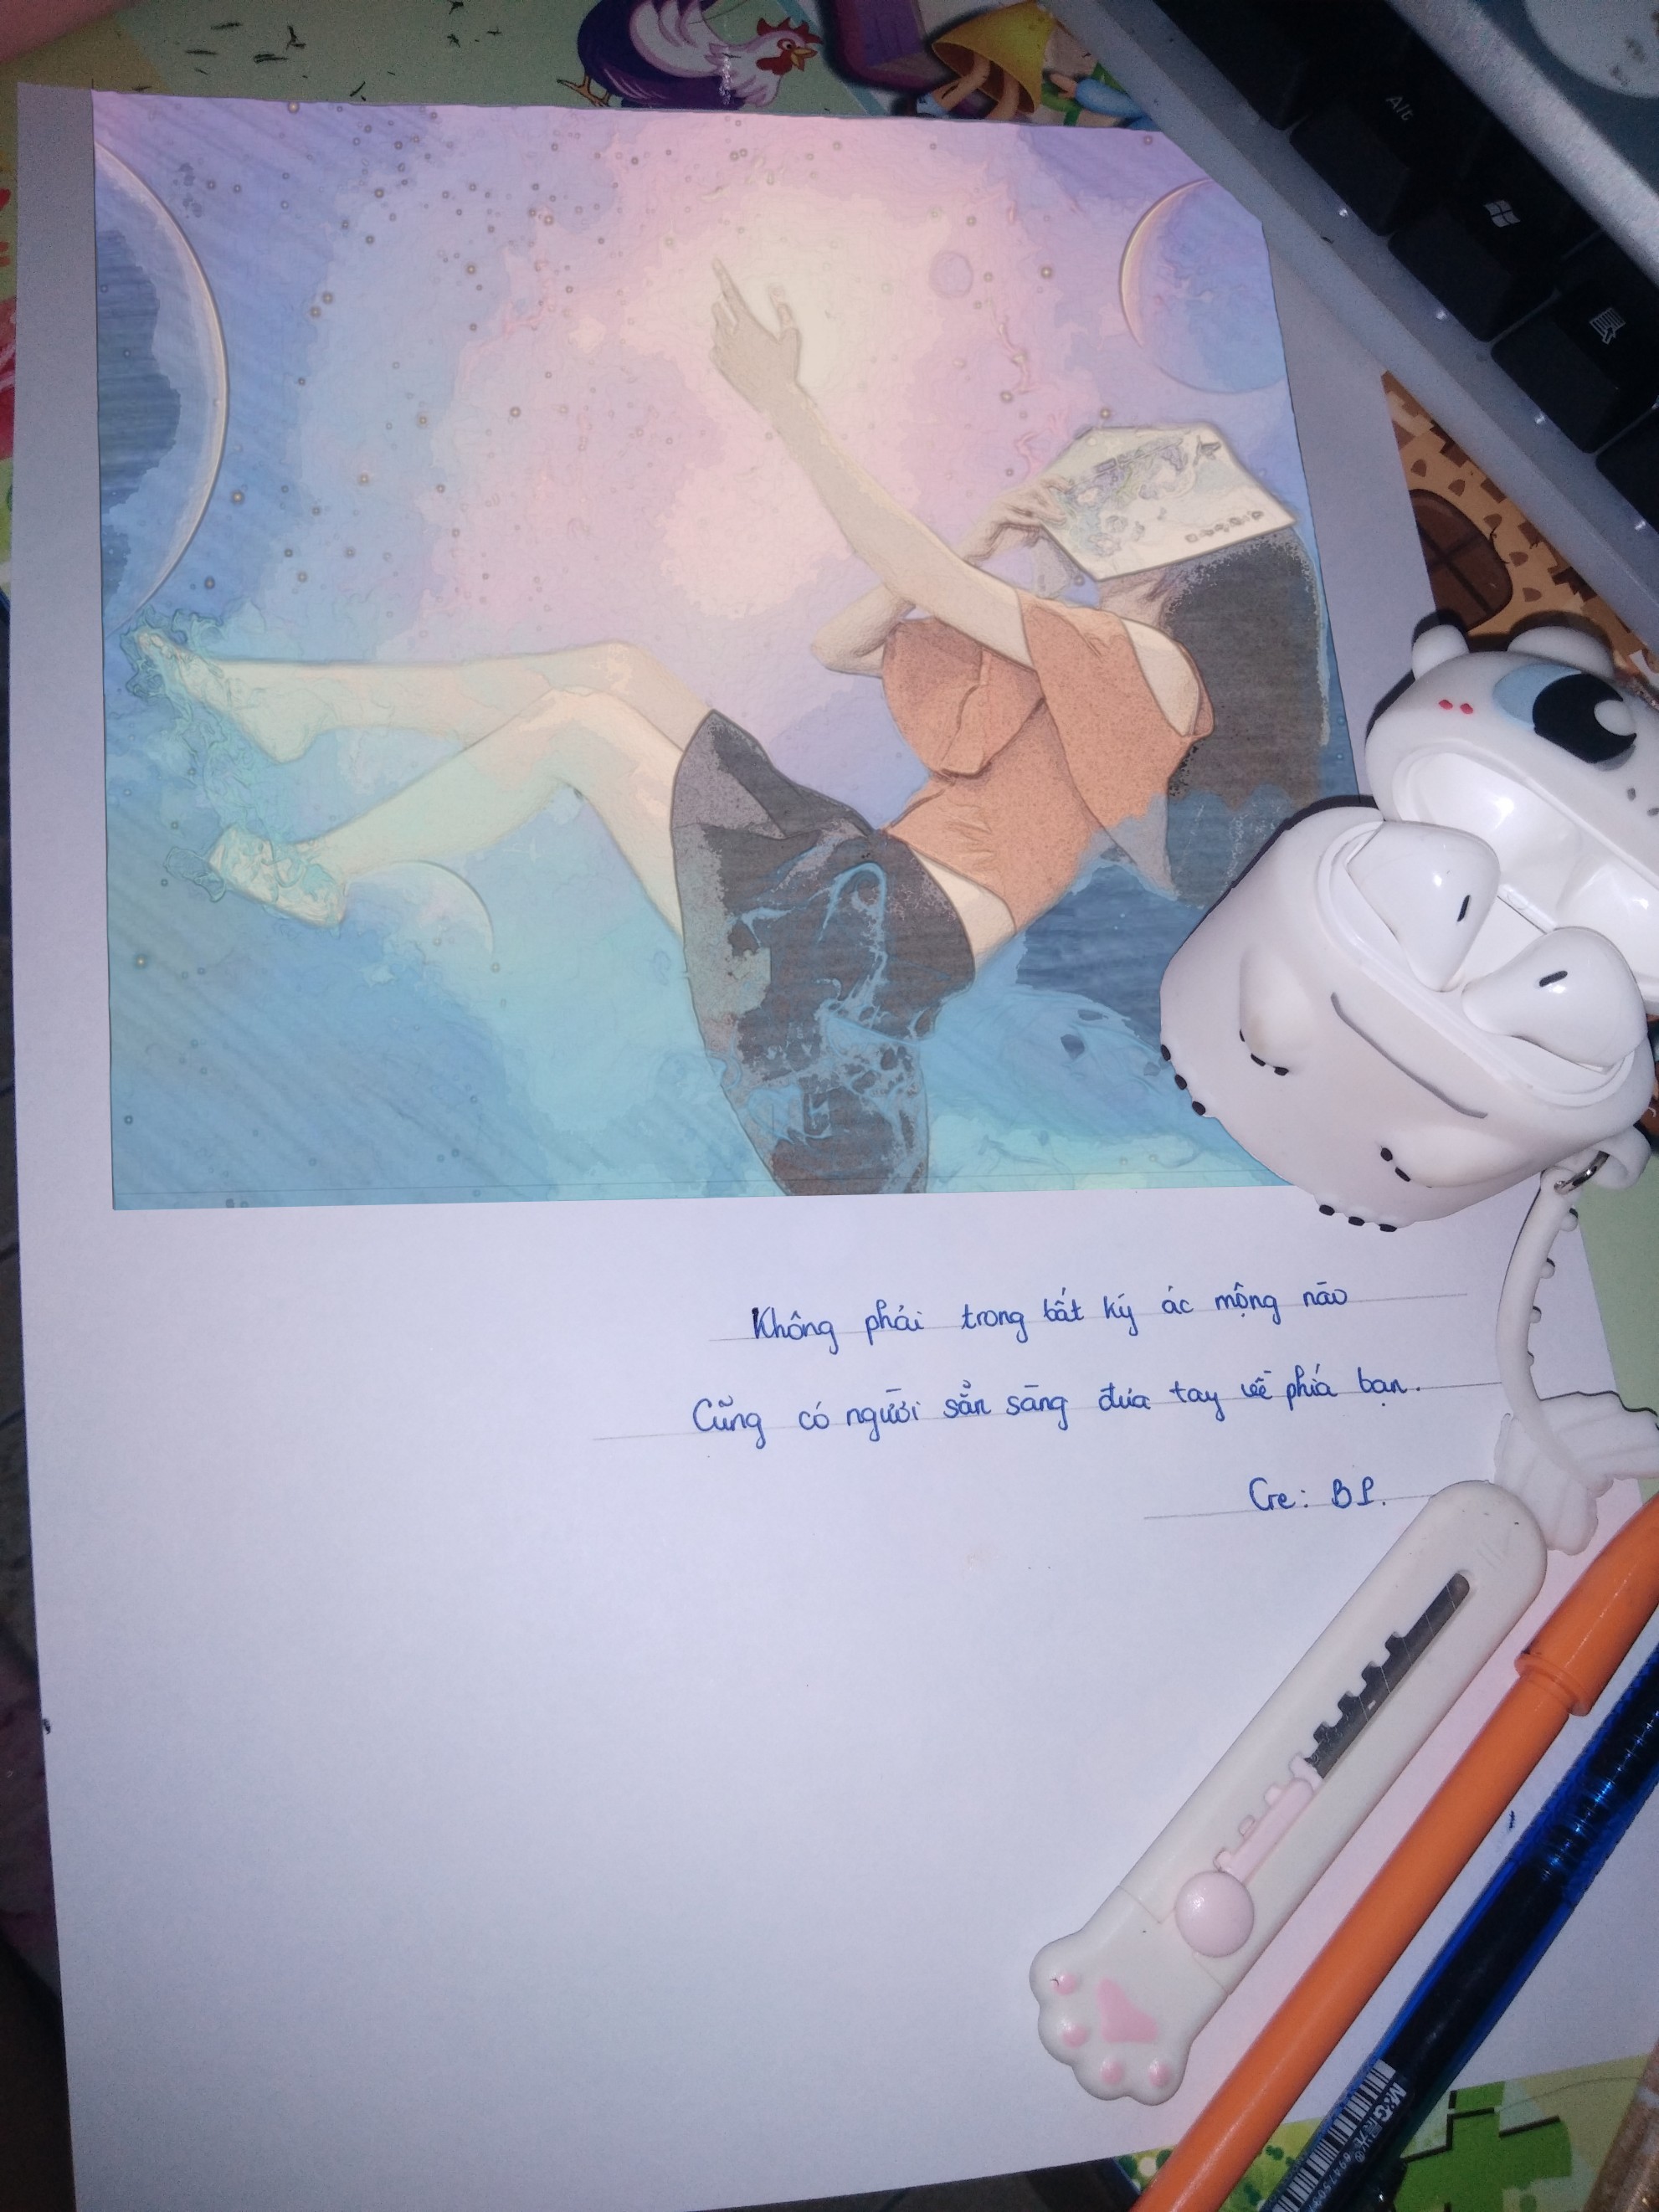 Alt
Không phải trong bất kỳ ác mộng nào
Cũng có người sẵn sàng đưa tay về phía bạn.
Cre: BP.
M&G